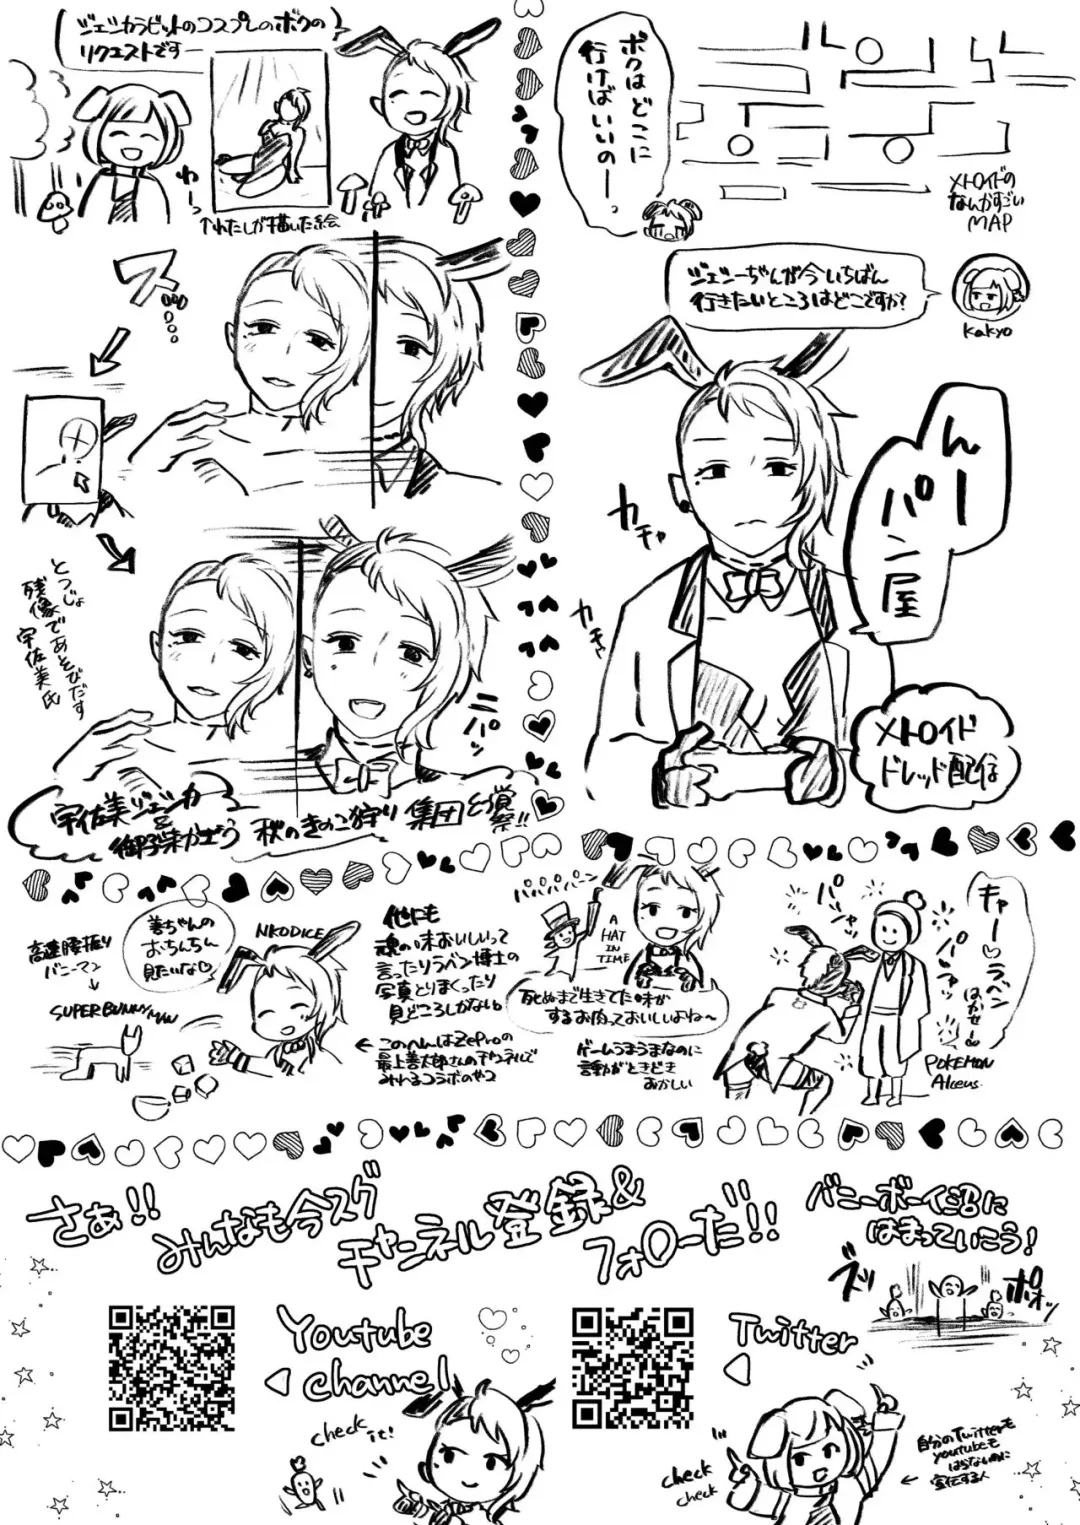 ジェシカラビットのコスプレのボクの
リクエストですー
わーっ
↑わたしが描いた絵
ボクはどこに
行けばいいのー?
メトロイドの
なんかすごい
MAP
ス…
ジェシーちゃんが今いちばん
行きたいところはどこですか?
kakyo
んー
パン屋
カチャ
カチャ
メトロイド
ドレッド配信
とつじょ
残像であそびだす
宇佐美氏
ニパッ
宇佐美ジェシカ
&
秋のきのこ狩り
集団幻覚
祭!!
高速腰振り
バニーマン
↓
SUPER BUNNY MAN
善ちゃんの
おちんちん
見たいな♡
NKODICE
他にも
魂の味おいしいって
言ったりラベン博士の
写真とりまくったり
見どころしかない。
← このへんはZeProの
最上善太郎さんのチャンネルで
みれるコラボのやつ
パパパパーン
A
HAT
IN
TIME
死ぬまで生きてた味が
するお肉っておいしいよね〜
ゲームうまうまなのに
言動がときどき
おかしい
パシャッ
パシャッ
キャー♡ラベン
はかせー
POKEMON
Alceus.
さあ!!
みんなも今スグ
チャンネル登録&
フォローだ!!
バニーボーイ沼に
はまっていこう!
ズッ
ポォッ
Youtube
channel
check
it!
Twitter
check
check
自分のTwitterも
youtubeも
はらないのに
宣伝する人